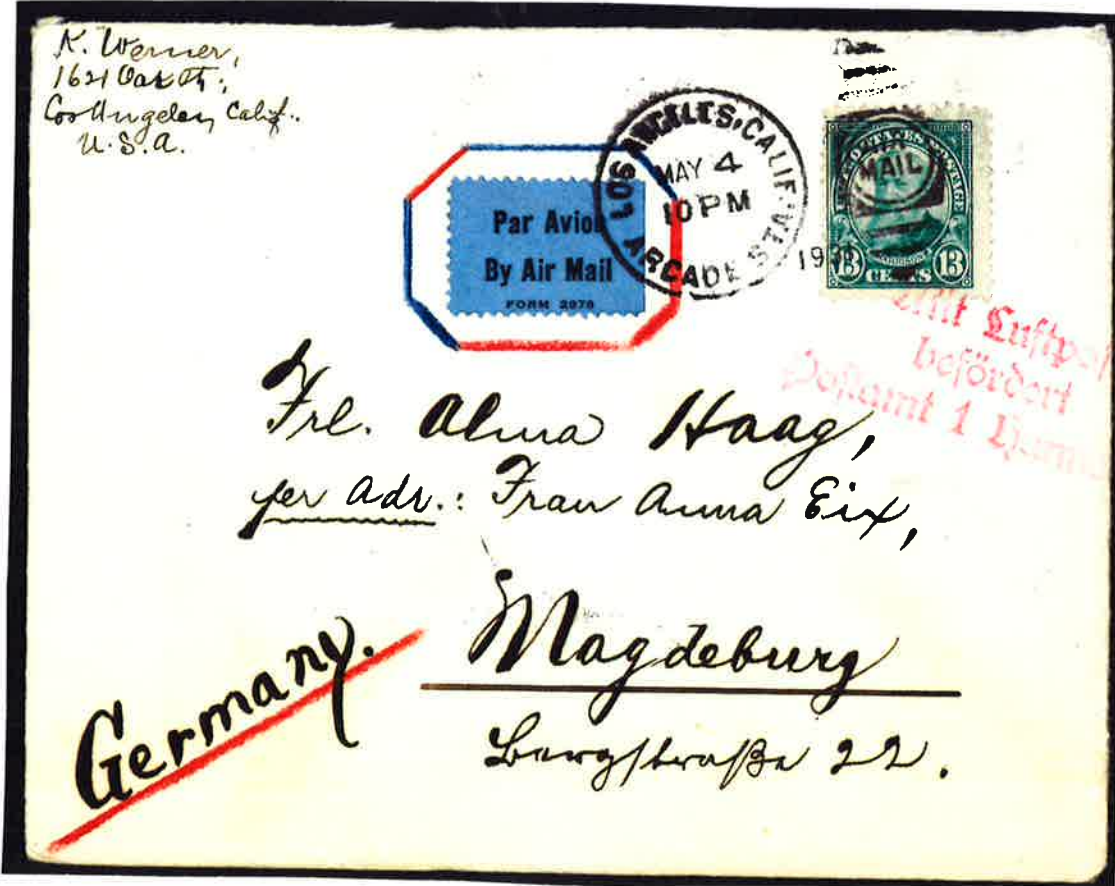 K. Werner,
1621 Oak St.,
Los Angeles, Calif..
U.S.A.
Par Avion
By Air Mail
FORM 2978
LOS ANGELES, CALIF.
MAY 4
10 PM
ARCADE STA.
AIR
MAIL
UNITED STATES POSTAGE
13 CENTS 13
Mit Luftpos
befördert
Postamt 1
Frl. Alma Haag,
per Adr.: Frau Anna Eix,
Magdeburg
Bergstraße 22.
Germany.